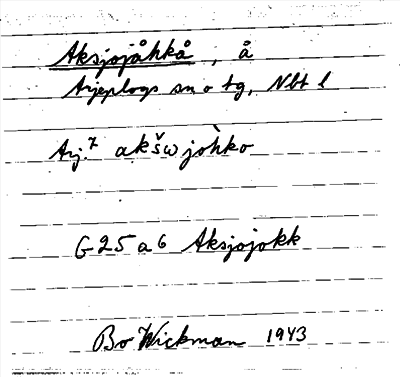 Aksjojåhkå, å
Arjeplogs sn o tg, Nbt l
Arj.7 akšwjòhko
G 25 a 6 Aksjojokk
Bo Wickman 1943